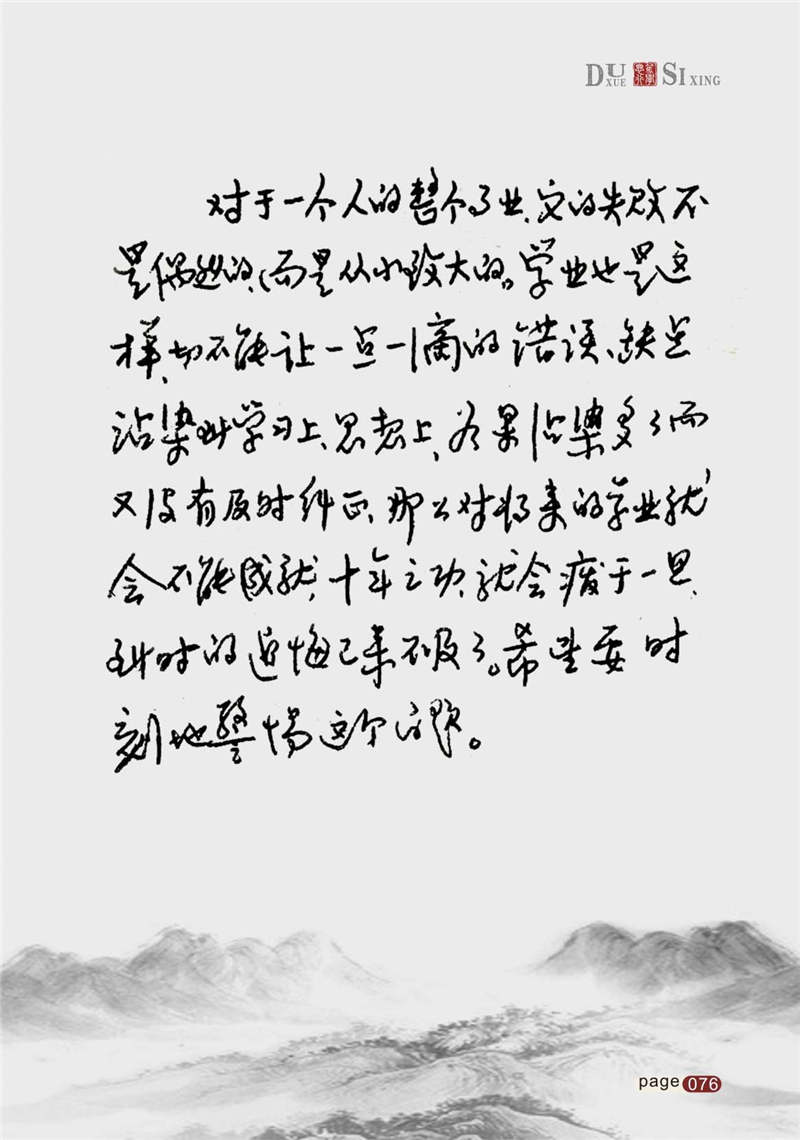 DU XUE SI XING
对于一个人的整个事业、它的失败不
是偶然的、而是从小致大的。学业也是这
样、切不能让一点一滴的错误、缺点
沾染到学习上、思想上、如果沾染多了而
又没有及时纠正、那么对将来的学业就
会不能成就、十年之功、就会废于一旦、
到时的追悔已来不及了。希望要时
刻地警惕这个问题。
page 076